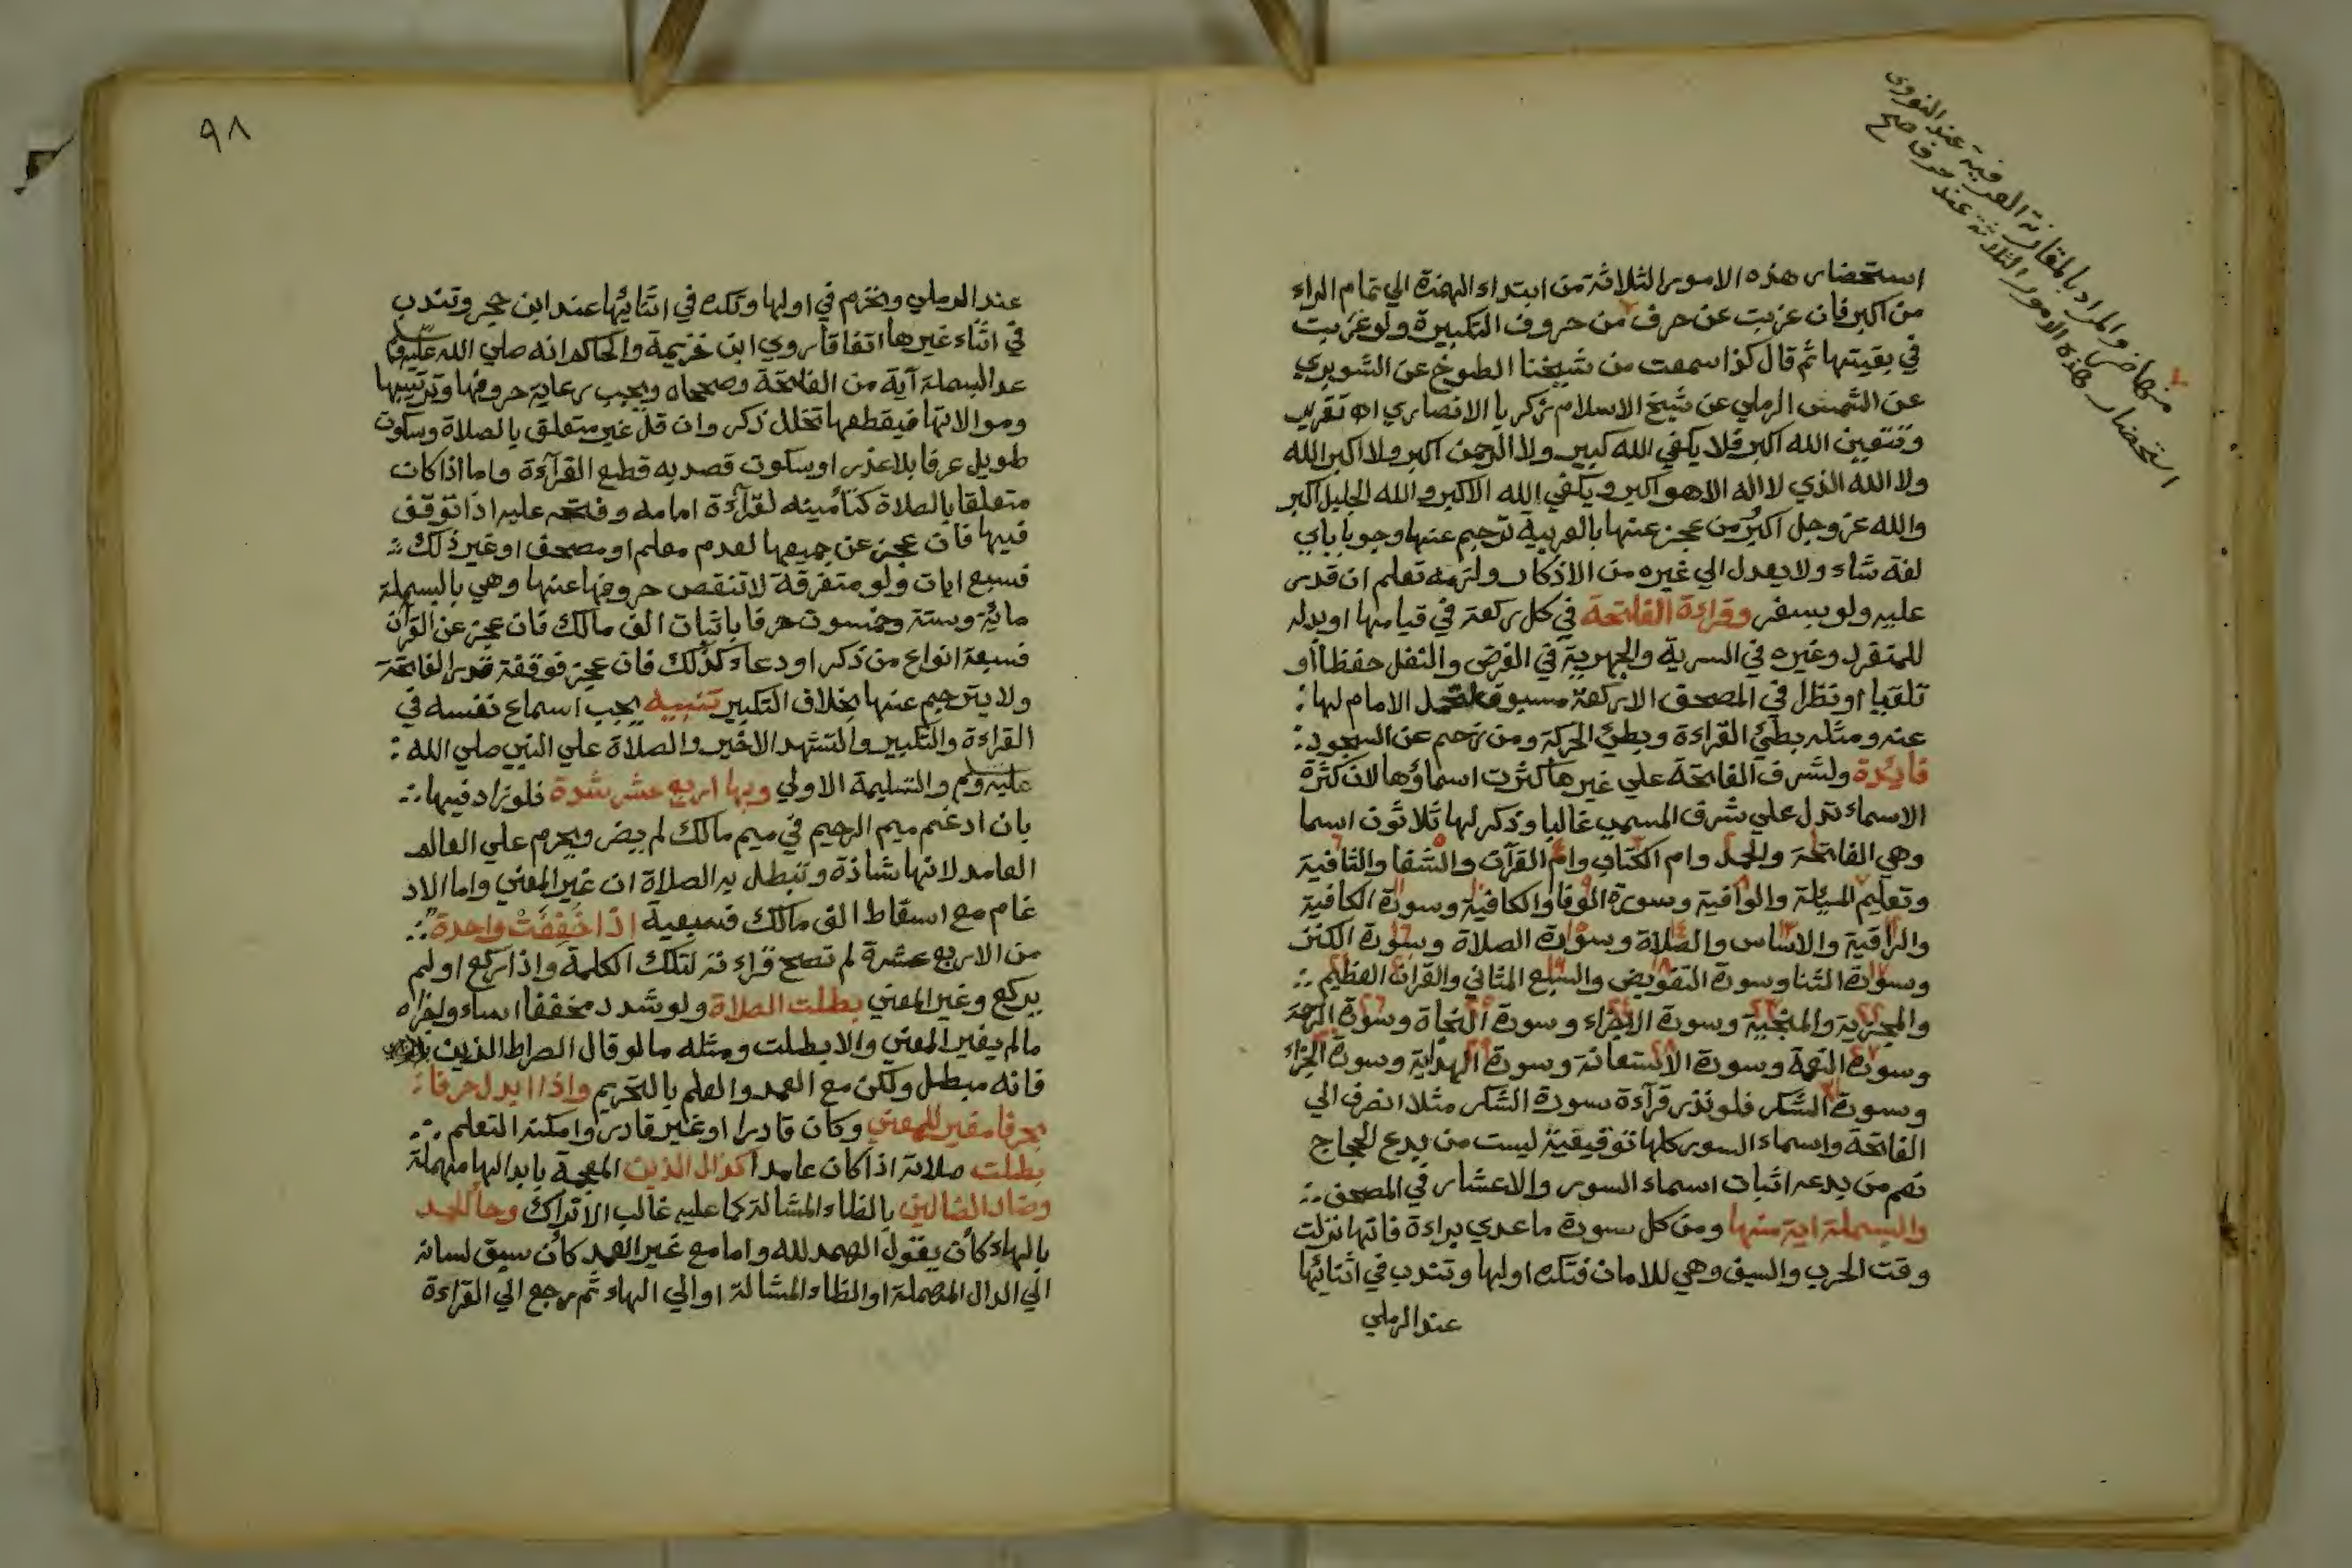 منها ضر والمراد بالمقارنة العرفية عند النووي
استحضار هذه الامور الثلاثة عند حرف صح
استحضار هذه الامور الثلاثة من ابتداء الهمزة الي تمام الراء
من اكبر فان عزبت عن حرف من حروف التكبيرة ولو عزبت
في بقيتها ثم قال كذا سمعت من شيخنا الطوخي عن الشوبري
عن الشمس الرملي عن شيخ الاسلام زكريا الانصاري اه تقريب
وتتعين الله اكبر فلا يكفي الله كبير ولا الرحمن اكبر ولا اكبر الله
ولا الله الذي لا اله الا هو اكبر ويكفي الله الاكبر والله الجليل اكبر
والله عز وجل اكبر من عجز عنها بالعربية ترجم عنها وجوبا باي
لغة شاء ولا يعدل الي غيره من الاذكار ولزمه تعلم ان قدر
عليه ولو بسفر وقراءة الفاتحة في كل ركعة في قيامها او بدله
للمنفرد وغيره في السرية والجهرية في الفرض والنفل حفظا او
تلقيا او نظرا في المصحف الا ركعة مسبوق لتحمل الامام لها
عنه ومثله بطئ القراءة وبطئ الحركة ومن زحم عن السجود
فايدة ولشرف الفاتحة علي غيرها كثرت اسماؤها لان كثرة
الاسماء تدل علي شرف المسمي غالبا وذكر لها ثلاثون اسما
وهي الفاتحة والحمد وام الكتاب وام القرآن والشفا والشافية
وتعليم المسئلة والوافية وسورة الوفا والكافية وسورة الكافية
والراقية والاساس والصلاة وسورة الصلاة وسورة الكنز
وسورة الثنا وسورة التفويض والسبع المثاني والقران العظيم
والمجزية والمنجية وسورة الاجزاء وسورة النجاة وسورة الرحمة
وسورة النعمة وسورة الاستعانة وسورة الهداية وسورة الجزاء
وسورة الشكر فلو نذر قرآءة سورة الشكر مثلا انصرف الي
الفاتحة واسماء السور كلها توقيفية ليست من بدع الحجاج
نعم من بدعه اثبات اسماء السور والاعشار في المصحف
والبسملة اية منها ومن كل سورة ما عدي براءة فانها نزلت
وقت الحرب والسيف وهي للامان فتكره اولها وتندب في اثنائها
عند الرملي
٩٨
عند الرملي وتحرم في اولها وتكره في اثنائها عند ابن حجر وتندب
في اثناء غيرها اتفاقا روي ابن خزيمة والحاكم انه صلي الله عليه وسلم
عد البسملة آية من الفاتحة وصححاه ويجب رعاية حروفها وترتيبها
وموالاتها فيقطعها تخلل ذكر وان قل غير متعلق بالصلاة وسكوت
طويل عرفا بلا عذر او سكوت قصد به قطع القرآءة واما اذا كان
متعلقا بالصلاة كتأمينه لقرآءة امامه وفتحه عليه اذا توقف
فيها فان عجز عن جميعها لعدم معلم او مصحف او غير ذلك
فسبع ايات ولو متفرقة لا تنقص حروفها عنها وهي بالبسملة
مائية وستة وخمسون حرفا باثبات الف مالك فان عجز عن القرآن
فسبعة انواع من ذكر او دعاء كذلك فان عجز فوقفة قدر الفاتحة
ولا يترجم عنها بخلاف التكبير تنبيه يجب اسماع نفسه في
القراءة والتكبير والتشهد الاخير والصلاة علي النبي صلي الله
عليه وسلم والتسليمة الاولي وبها اربع عشر شدة فلو زاد فيها
بان ادغم ميم الرحيم في ميم مالك لم يضر ويحرم علي العالم
العامد لانها شاذة وتبطل به الصلاة ان غير المعني واما الاد
غام مع اسقاط الف مالك فسبعية اذا خففت واحدة
من الاربع عشرة لم تصح قراءته لتلك الكلمة واذا ركع او لم
يركع وغير المعني بطلت الصلاة ولو شدد مخففا اساء واجزاه
ما لم يغير المعني والا بطلت ومثله ما لو قال الصراط الذين
فانه مبطل ولكن مع العمد والعلم بالتحريم واذا ابدل حرفا
بحرف مغير للمعني وكان قادرا او غير قادر وامكنه التعلم
بطلت صلاته اذا كان عامدا كذال الذين المعجمة بابدالها مهملة
وضاد الضالين بالظاء المشالة كما عليه غالب الاتراك وحا الحمد
بالهاء كأن يقول الهمد لله واما مع غير العمد كأن سبق لسانه
الي الدال المهملة او الظاء المشالة او الي الهاء ثم رجع الي القراءة